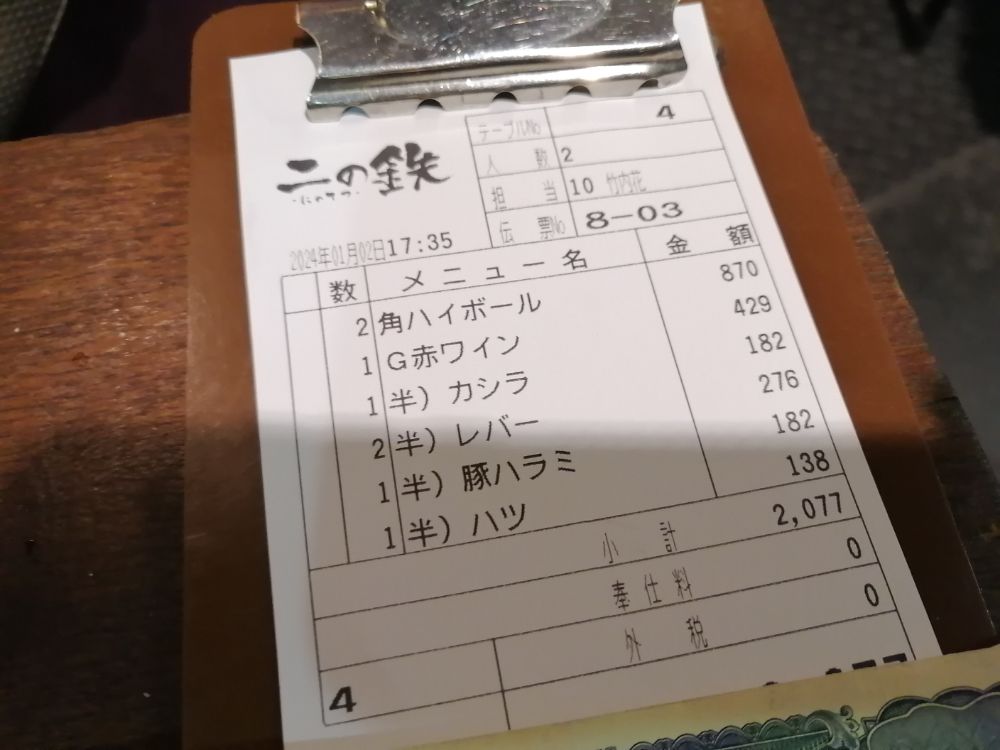 二の鉄
・にのてつ・
テーブルNo 4
人数 2
担当 10 竹内花
伝票No 8-03
2024年01月02日17:35
数 メニュー名 金額
2 角ハイボール 870
1 G赤ワイン 429
1 半）カシラ 182
2 半）レバー 276
1 半）豚ハラミ 182
1 半）ハツ 138
小計 2,077
奉仕料 0
外税 0
4